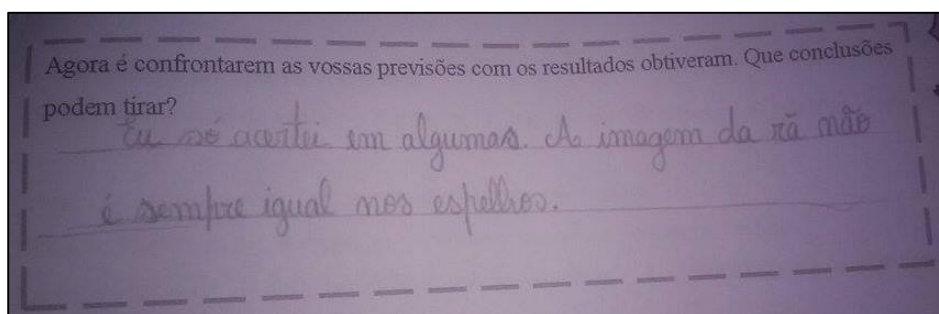 Agora é confrontarem as vossas previsões com os resultados obtiveram. Que conclusões
podem tirar?
Eu só acertei em algumas. A imagem da rã não
é sempre igual nos espelhos.